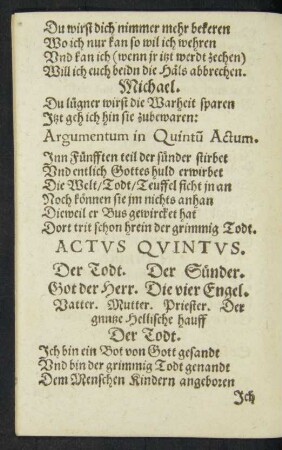 Du wirst dich nimmer mehr bekeren
Wo ich nur kan so wil ich wehren
Vnd kan ich (wenn jr itzt werdt zechen)
Will ich euch beidn die Häls abbrechen.
Michael.
Du lügner wirst die Warheit sparen
Jtzt geh ich hin sie zubewaren:
Argumentum in Quintū Actum.
Jnn Fünfften teil der sünder stirbet
Vnd entlich Gottes huld erwirbet
Die Welt/Todt/Teuffel ficht jn an
Noch können sie jm nichts anhan
Dieweil er Bus gewircket hat
Dort trit schon hrein der grimmig Todt.
ACTVS QVINTVS.
Der Todt. Der Sünder.
Got der Herr. Die vier Engel.
Vatter. Mutter. Priester. Der
gantze Hellische hauff
Der Todt.
Jch bin ein Bot von Gott gesandt
Vnd bin der grimmig Todt genandt
Dem Menschen Kindern angeboren
Jch